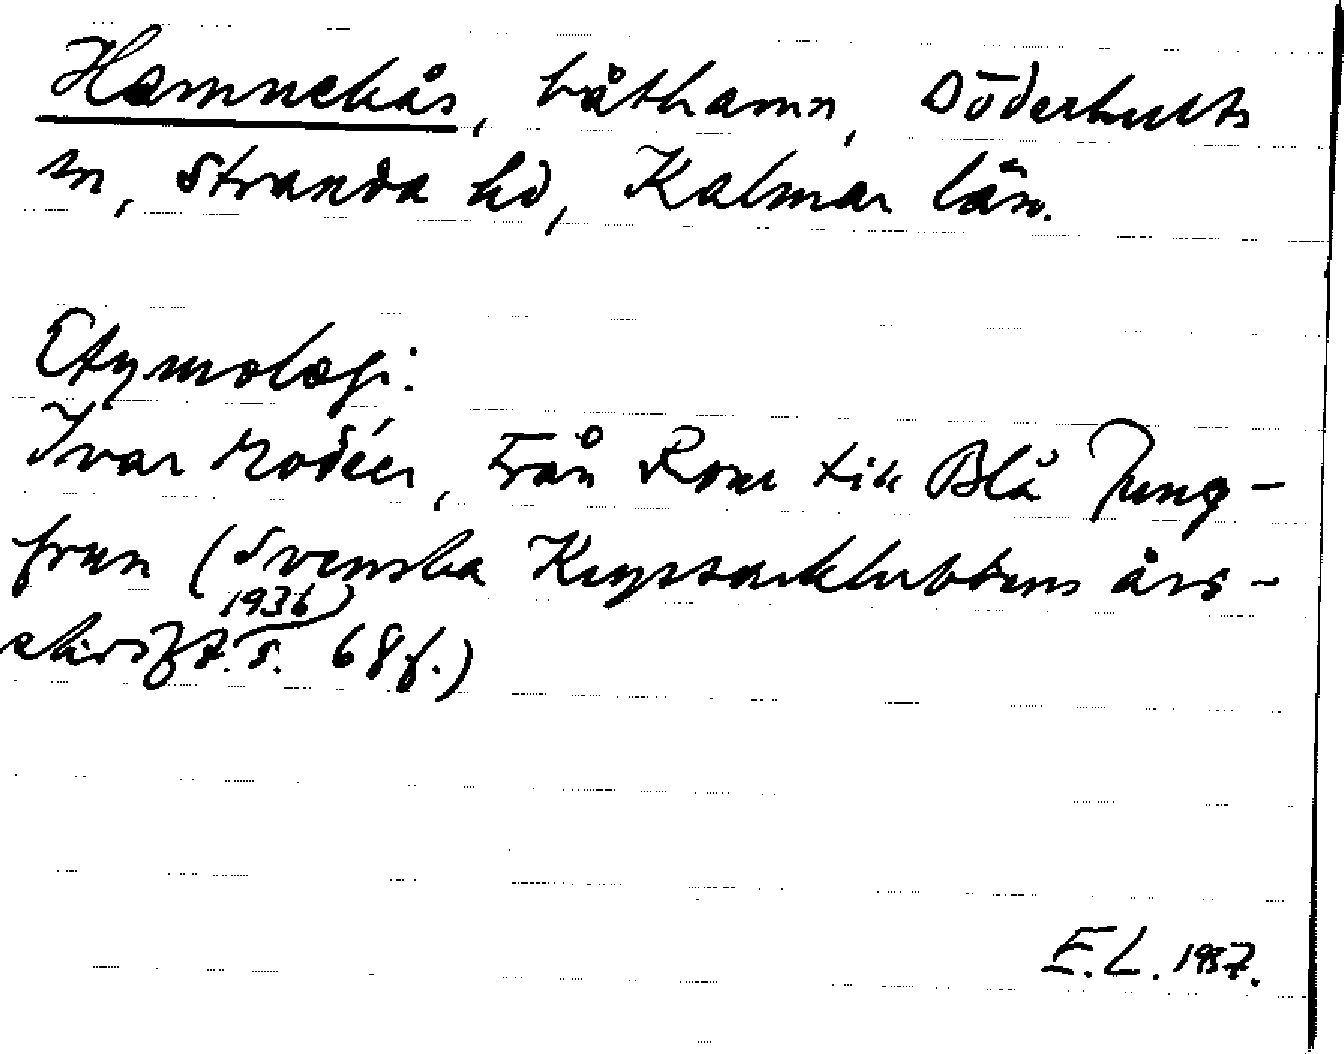 Hamnekås, båthamn, Döderhults
sn, Stranda hd, Kalmar län.
Etymologi:
Ivar Modéer, Från Rom till Blå Jung-
frun (Svenska Kryssarklubbens års-
skrift 1936) s. 68 f.)
E.L. 1937.